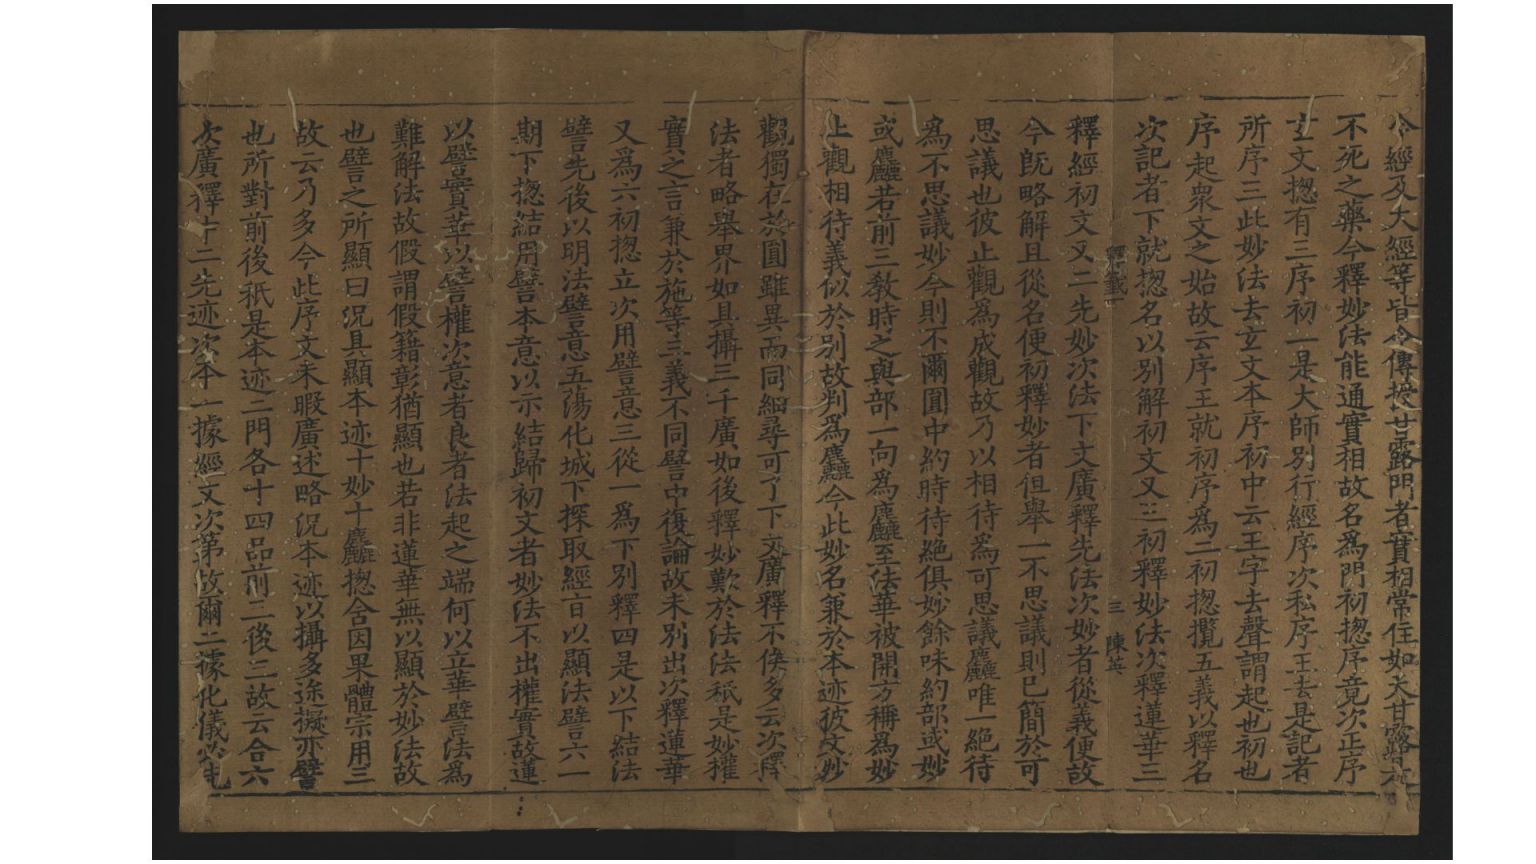 今經及大經等皆令傳授甘露門者實相常住如天甘露是
不死之藥今釋妙法能通實相故名爲門初揔序竟次正序
玄文揔有三序初一是大師別行經序次私序王去是記者
所序三此妙法去玄文本序初中云王字去聲謂起也初也
序起衆文之始故云序王就初序爲二初揔攬五義以釋名
次記者下就揔名以別解初文又三初釋妙法次釋蓮華三
釋籖一 三 陳英
釋經初文又二先妙次法下文廣釋先法次妙者從義便故
今旣略解且從名便初釋妙者但舉一不思議則已簡於可
思議也彼止觀爲成觀故乃以相待爲可思議麤唯一絶待
爲不思議妙今則不爾圓中約時待絶俱妙餘味約部或妙
或麤若前三教時之與部一向爲麤至法華被開方稱爲妙
止觀相待義似於別故判爲麤今此妙名兼於本迹彼文妙
觀獨在於圓雖異而同細尋可了下文廣釋不俟多云次釋
法者略舉界如具攝三千廣如後釋妙歎於法法秖是妙權
實之言兼於施等三義不同譬中復論故未別出次釋蓮華
又爲六初揔立次用譬意三從一爲下別釋四是以下結法
譬先後以明法譬意五蕩化城下探取經言以顯法譬六一
期下揔結用譬本意以示結歸初文者妙法不出權實故蓮
以譬實華以譬權次意者良者法起之端何以立華譬法爲
難解法故假謂假籍彰猶顯也若非蓮華無以顯於妙法故
也譬之所顯曰況具顯本迹十妙十麤揔含因果體宗用三
故云乃多今此序文未暇廣述略況本迹以攝多途擬亦譬
也所對前後秖是本迹二門各十四品前二後三故云合六
次廣釋中二先迹次本一據經文次第故爾二據化儀必先